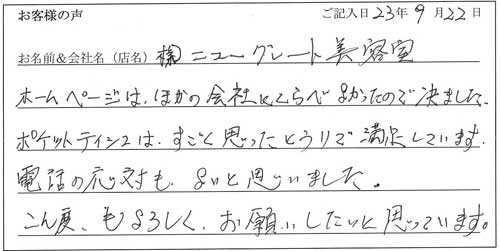 お客様の声 ご記入日 23年 9月 22日
お名前&会社名（店名） ㈱ニューグレート美容室
ホームページは、ほかの会社にくらべよかったので決ました。
ポケットティシュは、すごと思ったとうりで満足しています。
電話の応対も よいと思いました。
こん度、もよろしく、お願いしたいと思っています。